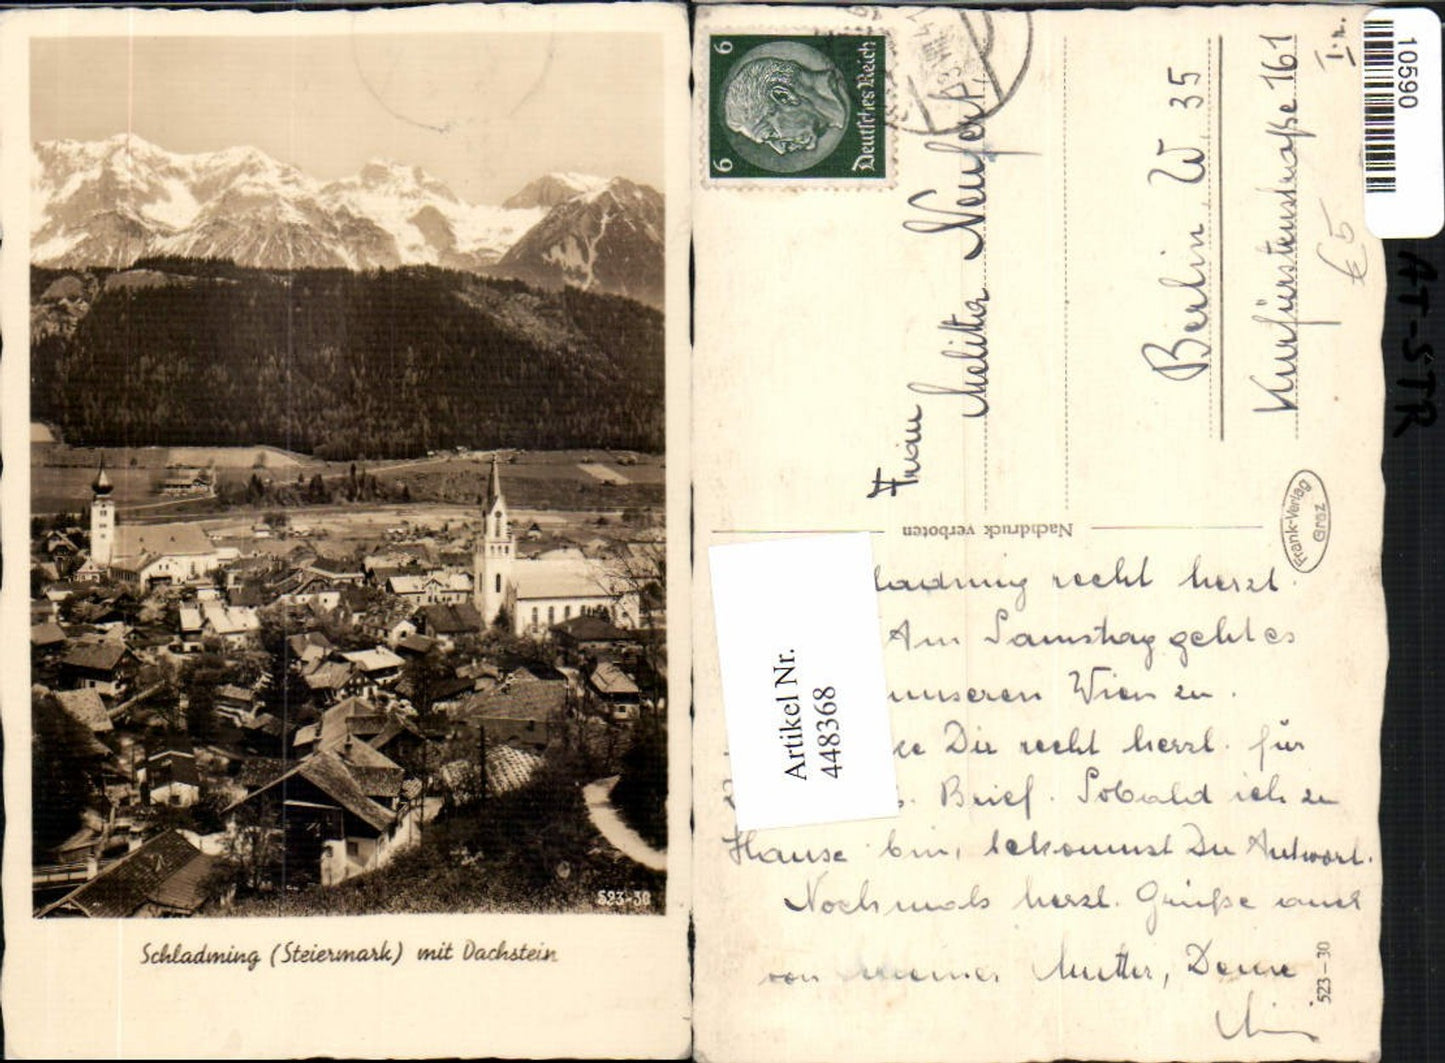 523-30
Schladming (Steiermark) mit Dachstein
6 6
Deutsches Reich
Frau
Melitta Neufert
Berlin W. 35
Kurfürstenstraße 161
I. r.
10590
€5
AT-STR
Nachdruck verboten
Frank-Verlag
Graz
Artikel Nr.
448368
ladming recht herzl.
Am Samstag geht es
unseren Wien zu.
ke Dir recht herzl. für
Brief. Sobald ich zu
Hause bin, bekommst Du Antwort.
Nochmals herzl. Grüße auch
von meiner Mutter, Deine
523-30